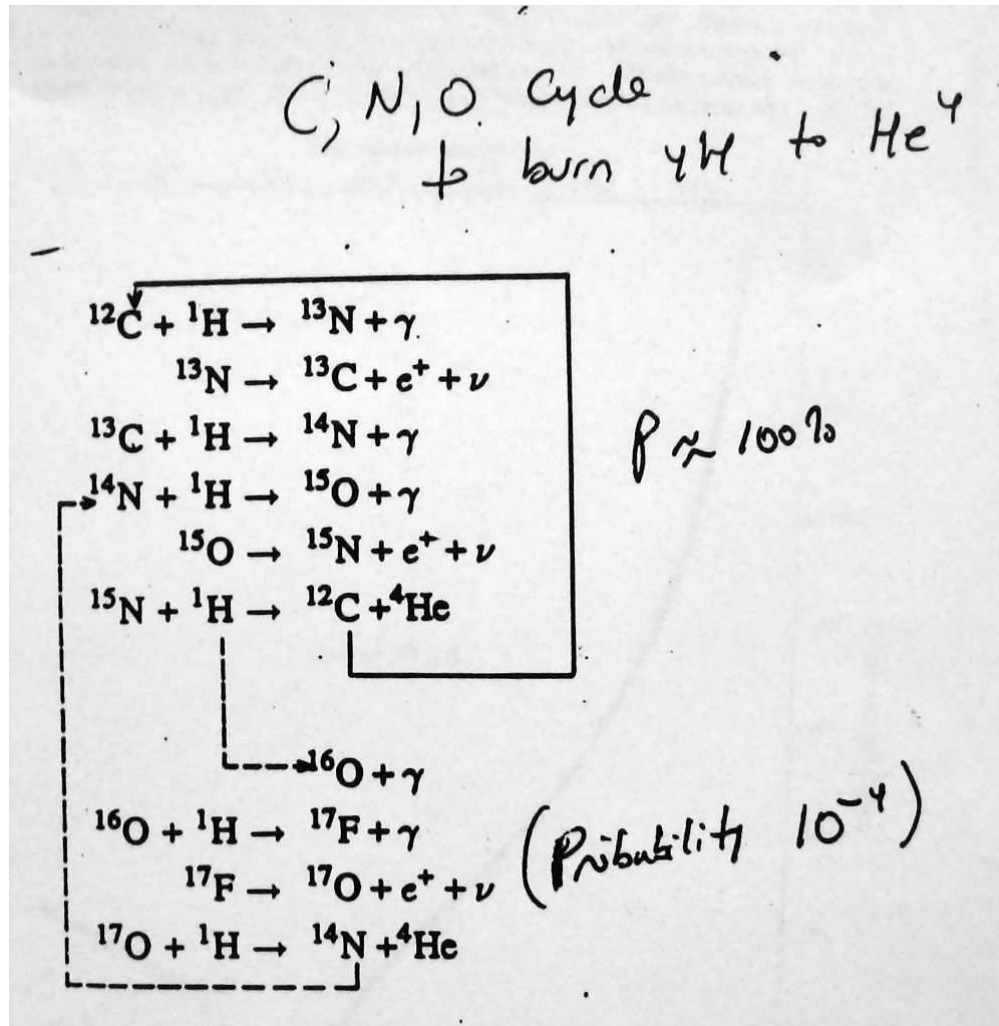 C, N, O. Cycle
to burn 4H to He⁴
¹²C + ¹H → ¹³N + γ
¹³N → ¹³C + e⁺ + ν
¹³C + ¹H → ¹⁴N + γ
¹⁴N + ¹H → ¹⁵O + γ
¹⁵O → ¹⁵N + e⁺ + ν
¹⁵N + ¹H → ¹²C + ⁴He
P ≈ 100%
¹⁶O + γ
¹⁶O + ¹H → ¹⁷F + γ
¹⁷F → ¹⁷O + e⁺ + ν
¹⁷O + ¹H → ¹⁴N + ⁴He
(Probability 10⁻⁴)